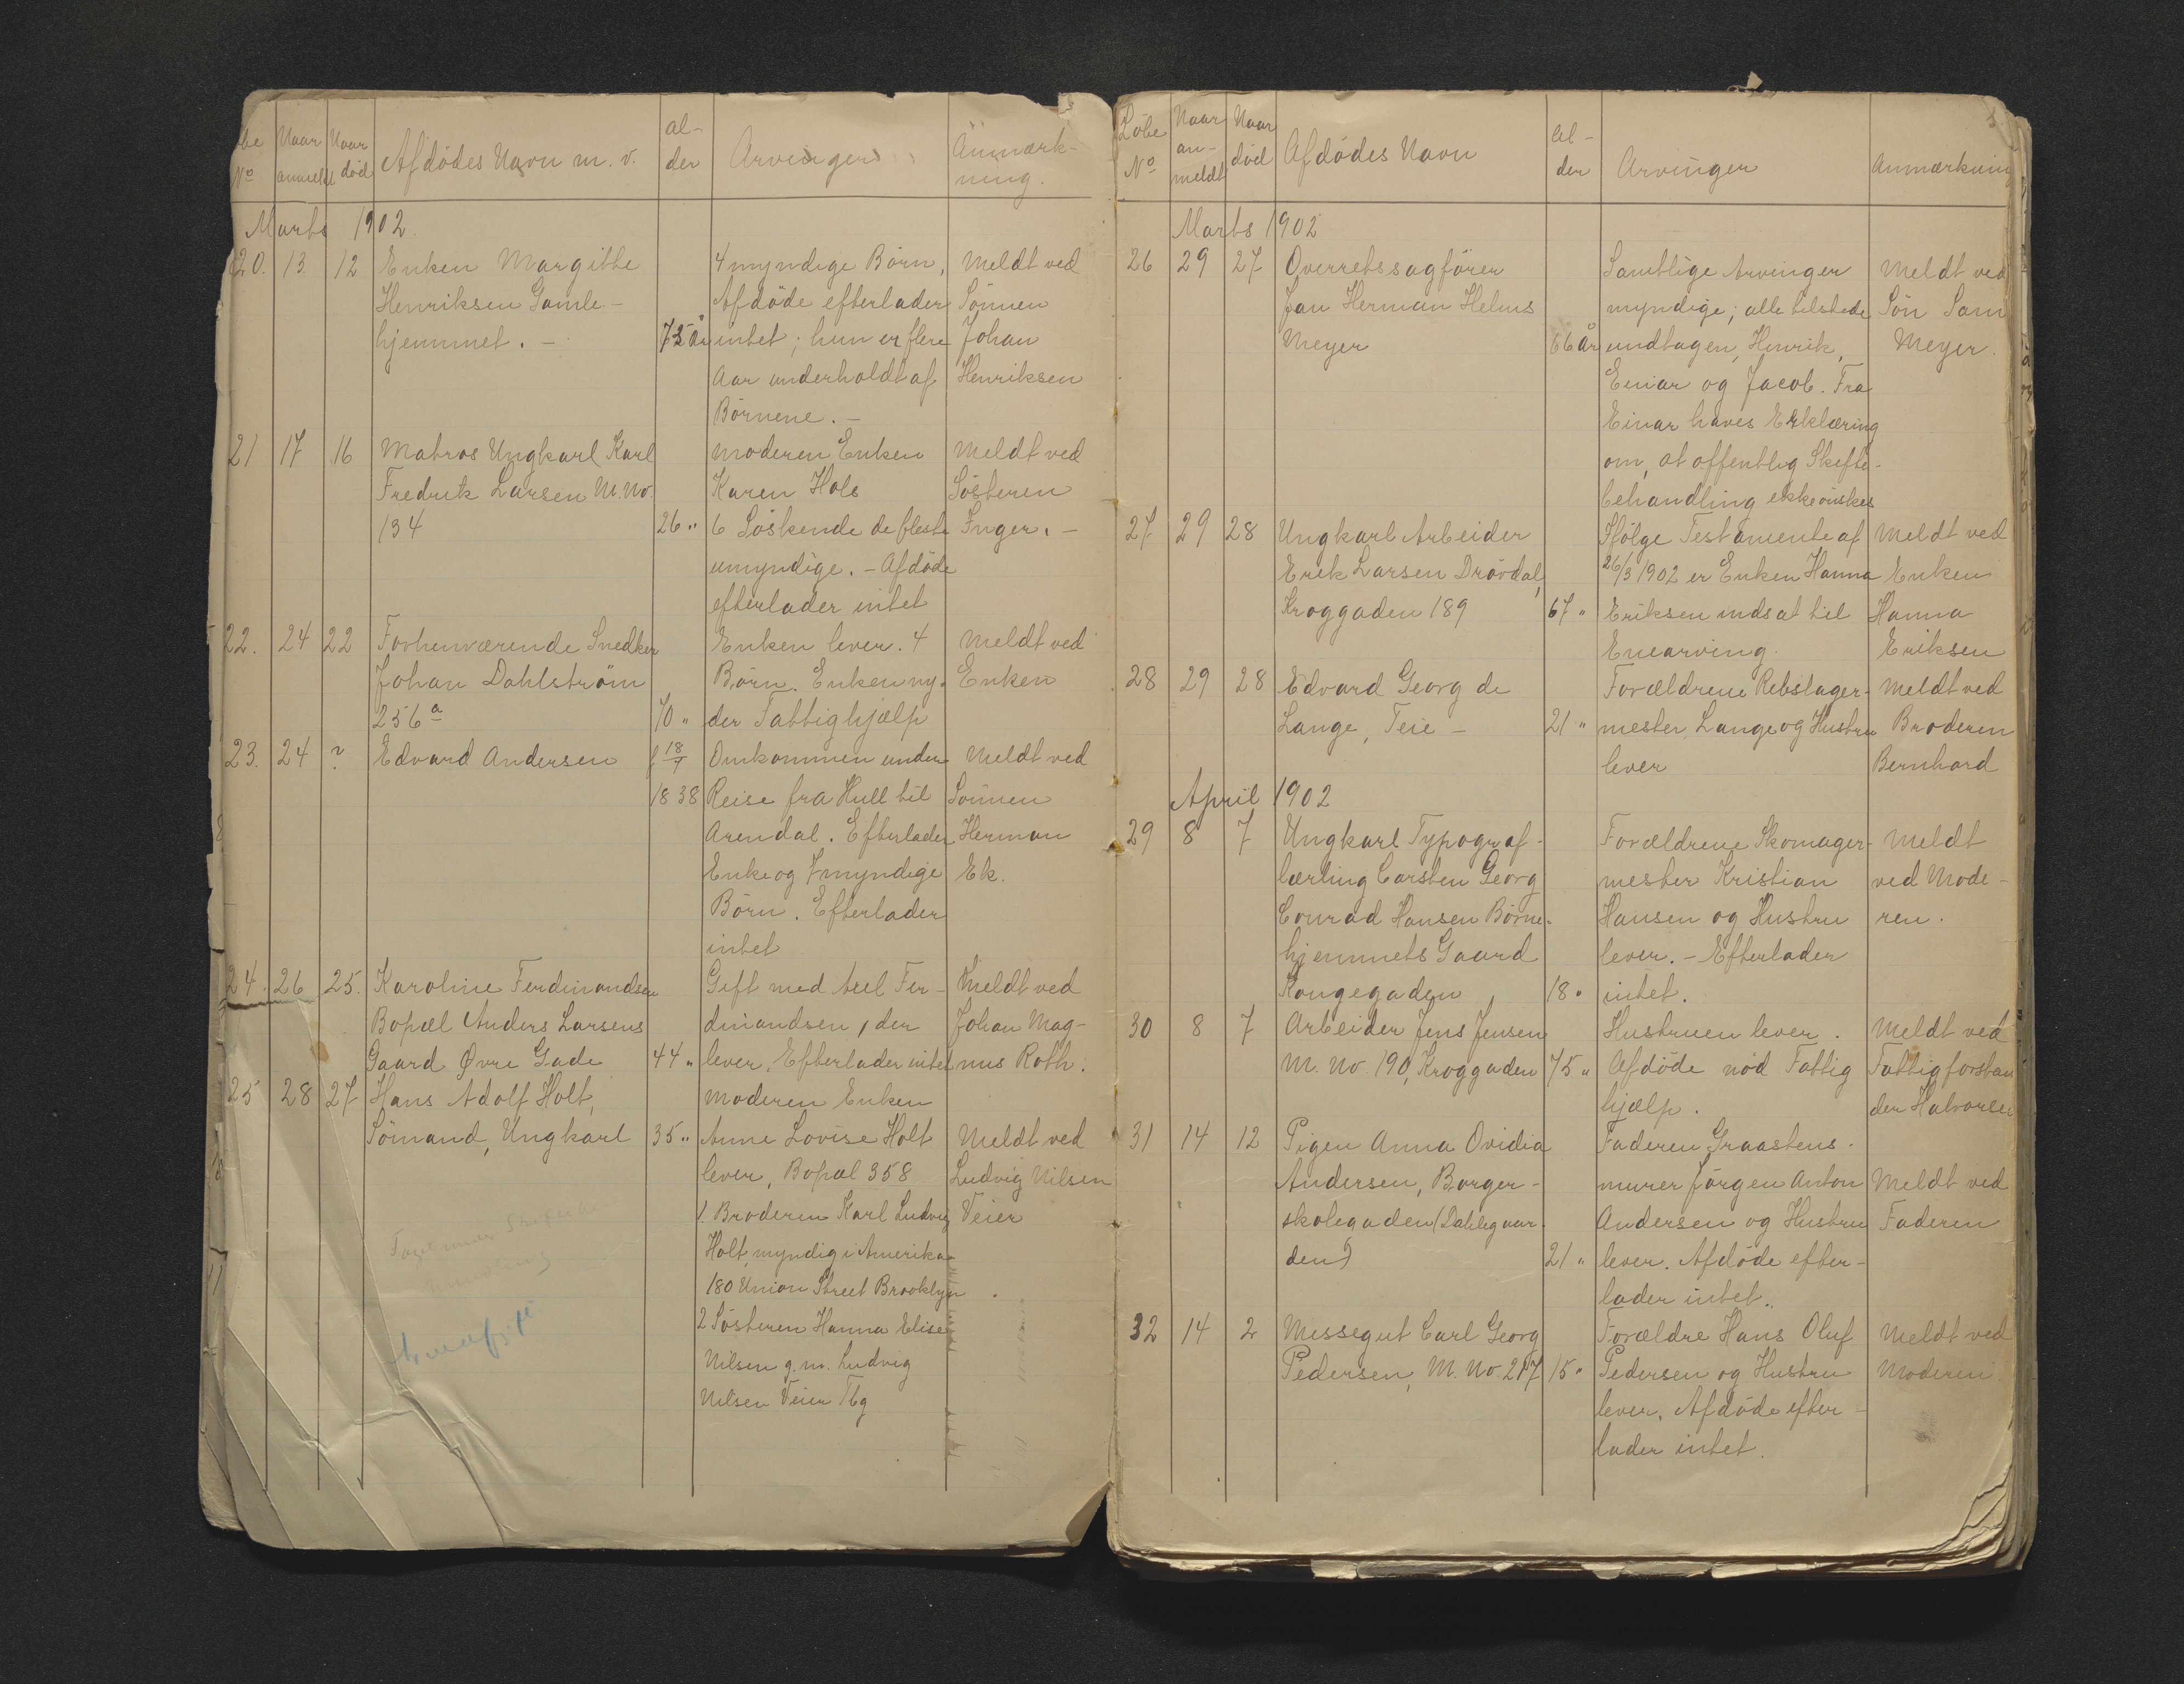 Löbe No
Naar anmeldt
Naar död
Afdödes Navn m. v.
al-der
Arvinger
Anmærk-ning.
Marts 1902.
20. 13. 12 Enken Margithe 4 myndige Börn, Meldt ved
Henriksen Gamle- Afdöde efterlader Sönnen
hjemmet. - 75 Aar intet; hun er flere Johan
Aar underholdt af Henriksen
Börnene. -
21 17 16 Matros Ungkarl Karl Moderen Enken Meldt ved
Fredrik Larsen M. No. Karen Hols Sösteren
134 26 " 6 Söskende de fleste Inger. -
umyndige. - Afdöde
efterlader intet
22. 24 22 Forhenværende Snedker Enken lever. 4 Meldt ved
Johan Dahlström Börn. Enken ny- Enken
256 a 70 " der Fattighjælp
23. 24 ? Edvard Andersen f 18/7 Omkommen under Meldt ved
1838 Reise fra Hull til Sönnen
Arendal. Efterlader Herman
Enke og 7 myndige Ek.
Börn. Efterlader
intet
24. 26 25. Karoline Ferdinandsen Gift med Axel Fer- Meldt ved
Bopæl Anders Larsens dinandsen, der Johan Mag-
Gaard Øvre Gade 44 " lever. Efterlader intet nus Roth.
25 28 27 Hans Adolf Holt, Moderen Enken
Sömand, Ungkarl 35 " Anne Lovise Holt Meldt ved
lever, Bopæl 358 Ludvig Nilsen
1. Broderen Karl Ludvig Veier
Holt, myndig i Amerika
180 Union Street Brooklyn
2 Sösteren Hanna Elise
Nilsen g. m. Ludvig
Nilsen Veier Tbg
Löbe No
Naar an-meldt
Naar död
Afdödes Navn
al-der
Arvinger
Anmærkning
Marts 1902
26 29 27 Overretssagförer Samtlige Arvinger Meldt ved
Jan Herman Helms myndige; alle tilstede Sön Sam
Meyer 66 Aar undtagen, Henrik, Meyer.
Einar og Jacob. Fra
Einar haves Erklæring
om, at offentlig Skifte-
behandling ikke önskes
27 29 28 Ungkarl Arbeider Ifölge Testamente af Meldt ved
Erik Larsen Drövdal, 26/3 1902 er Enken Hanna Enken
Kroggaden 189 67 " Eriksen indsat til Hanna
Enearving. Eriksen
28 29 28 Edvard Georg de Forældrene Rebslager- Meldt ved
Lange, Teie - 21 " mester Lange og Hustru Broderen
lever Bernhard
April 1902
29 8 7 Ungkarl Typograf- Forældrene Skomager- Meldt
lærling Carsten Georg mester Kristian ved Mode-
Conrad Hansen Börne- Hansen og Hustru ren.
hjemmets Gaard lever. - Efterlader
Kongegaden 18 " intet.
30 8 7 Arbeider Jens Jensen Hustruen lever. Meldt ved
M. No. 190, Kroggaden 75 " Afdöde nöd Fattig Fattigforstan
hjælp. der Halvorsen
31 14 12 Pigen Anna Ovidia Faderen Graastens-
Andersen, Borger- murer Jörgen Anton Meldt ved
skolegaden (Dahlegaar- Andersen og Hustru Faderen
den) 21 " lever. Afdöde efter-
lader intet.
32 14 2 Messegut Carl Georg Forældre Hans Oluf Meldt ved
Pedersen, M. No 217 15 " Pedersen og Hustru Moderen
lever. Afdöde efter-
lader intet.